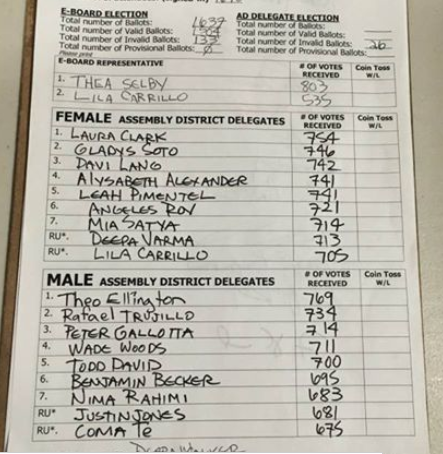 E-BOARD ELECTION
Total number of Ballots: 1637
Total number of Valid Ballots: 1504
Total number of Invalid Ballots: 133
Total number of Provisional Ballots: Ø
Please print
AD DELEGATE ELECTION
Total number of Ballots:
Total number of Valid Ballots:
Total number of Invalid Ballots: 26
Total number of Provisional Ballots:
E-BOARD REPRESENTATIVE # OF VOTES RECEIVED Coin Toss W/L
1. THEA SELBY 803
2. LILA CARRILLO 535
FEMALE ASSEMBLY DISTRICT DELEGATES # OF VOTES RECEIVED Coin Toss W/L
1. LAURA CLARK 754
2. GLADYS SOTO 746
3. DAVI LANG 742
4. ALYSABETH ALEXANDER 741
5. LEAH PIMENTEL 741
6. ANGELES ROY 721
7. MIA SATYA 714
RU*. DEEPA VARMA 713
RU*. LILA CARRILLO 705
MALE ASSEMBLY DISTRICT DELEGATES # OF VOTES RECEIVED Coin Toss W/L
1. Theo Ellington 769
2. Rafael TRUJILLO 734
3. PETER GALLOTTA 714
4. WADE WOODS 711
5. TODD DAVID 700
6. BENJAMIN BECKER 695
7. NIMA RAHIMI 683
RU* JUSTIN JONES 681
RU*. COMA Te 675